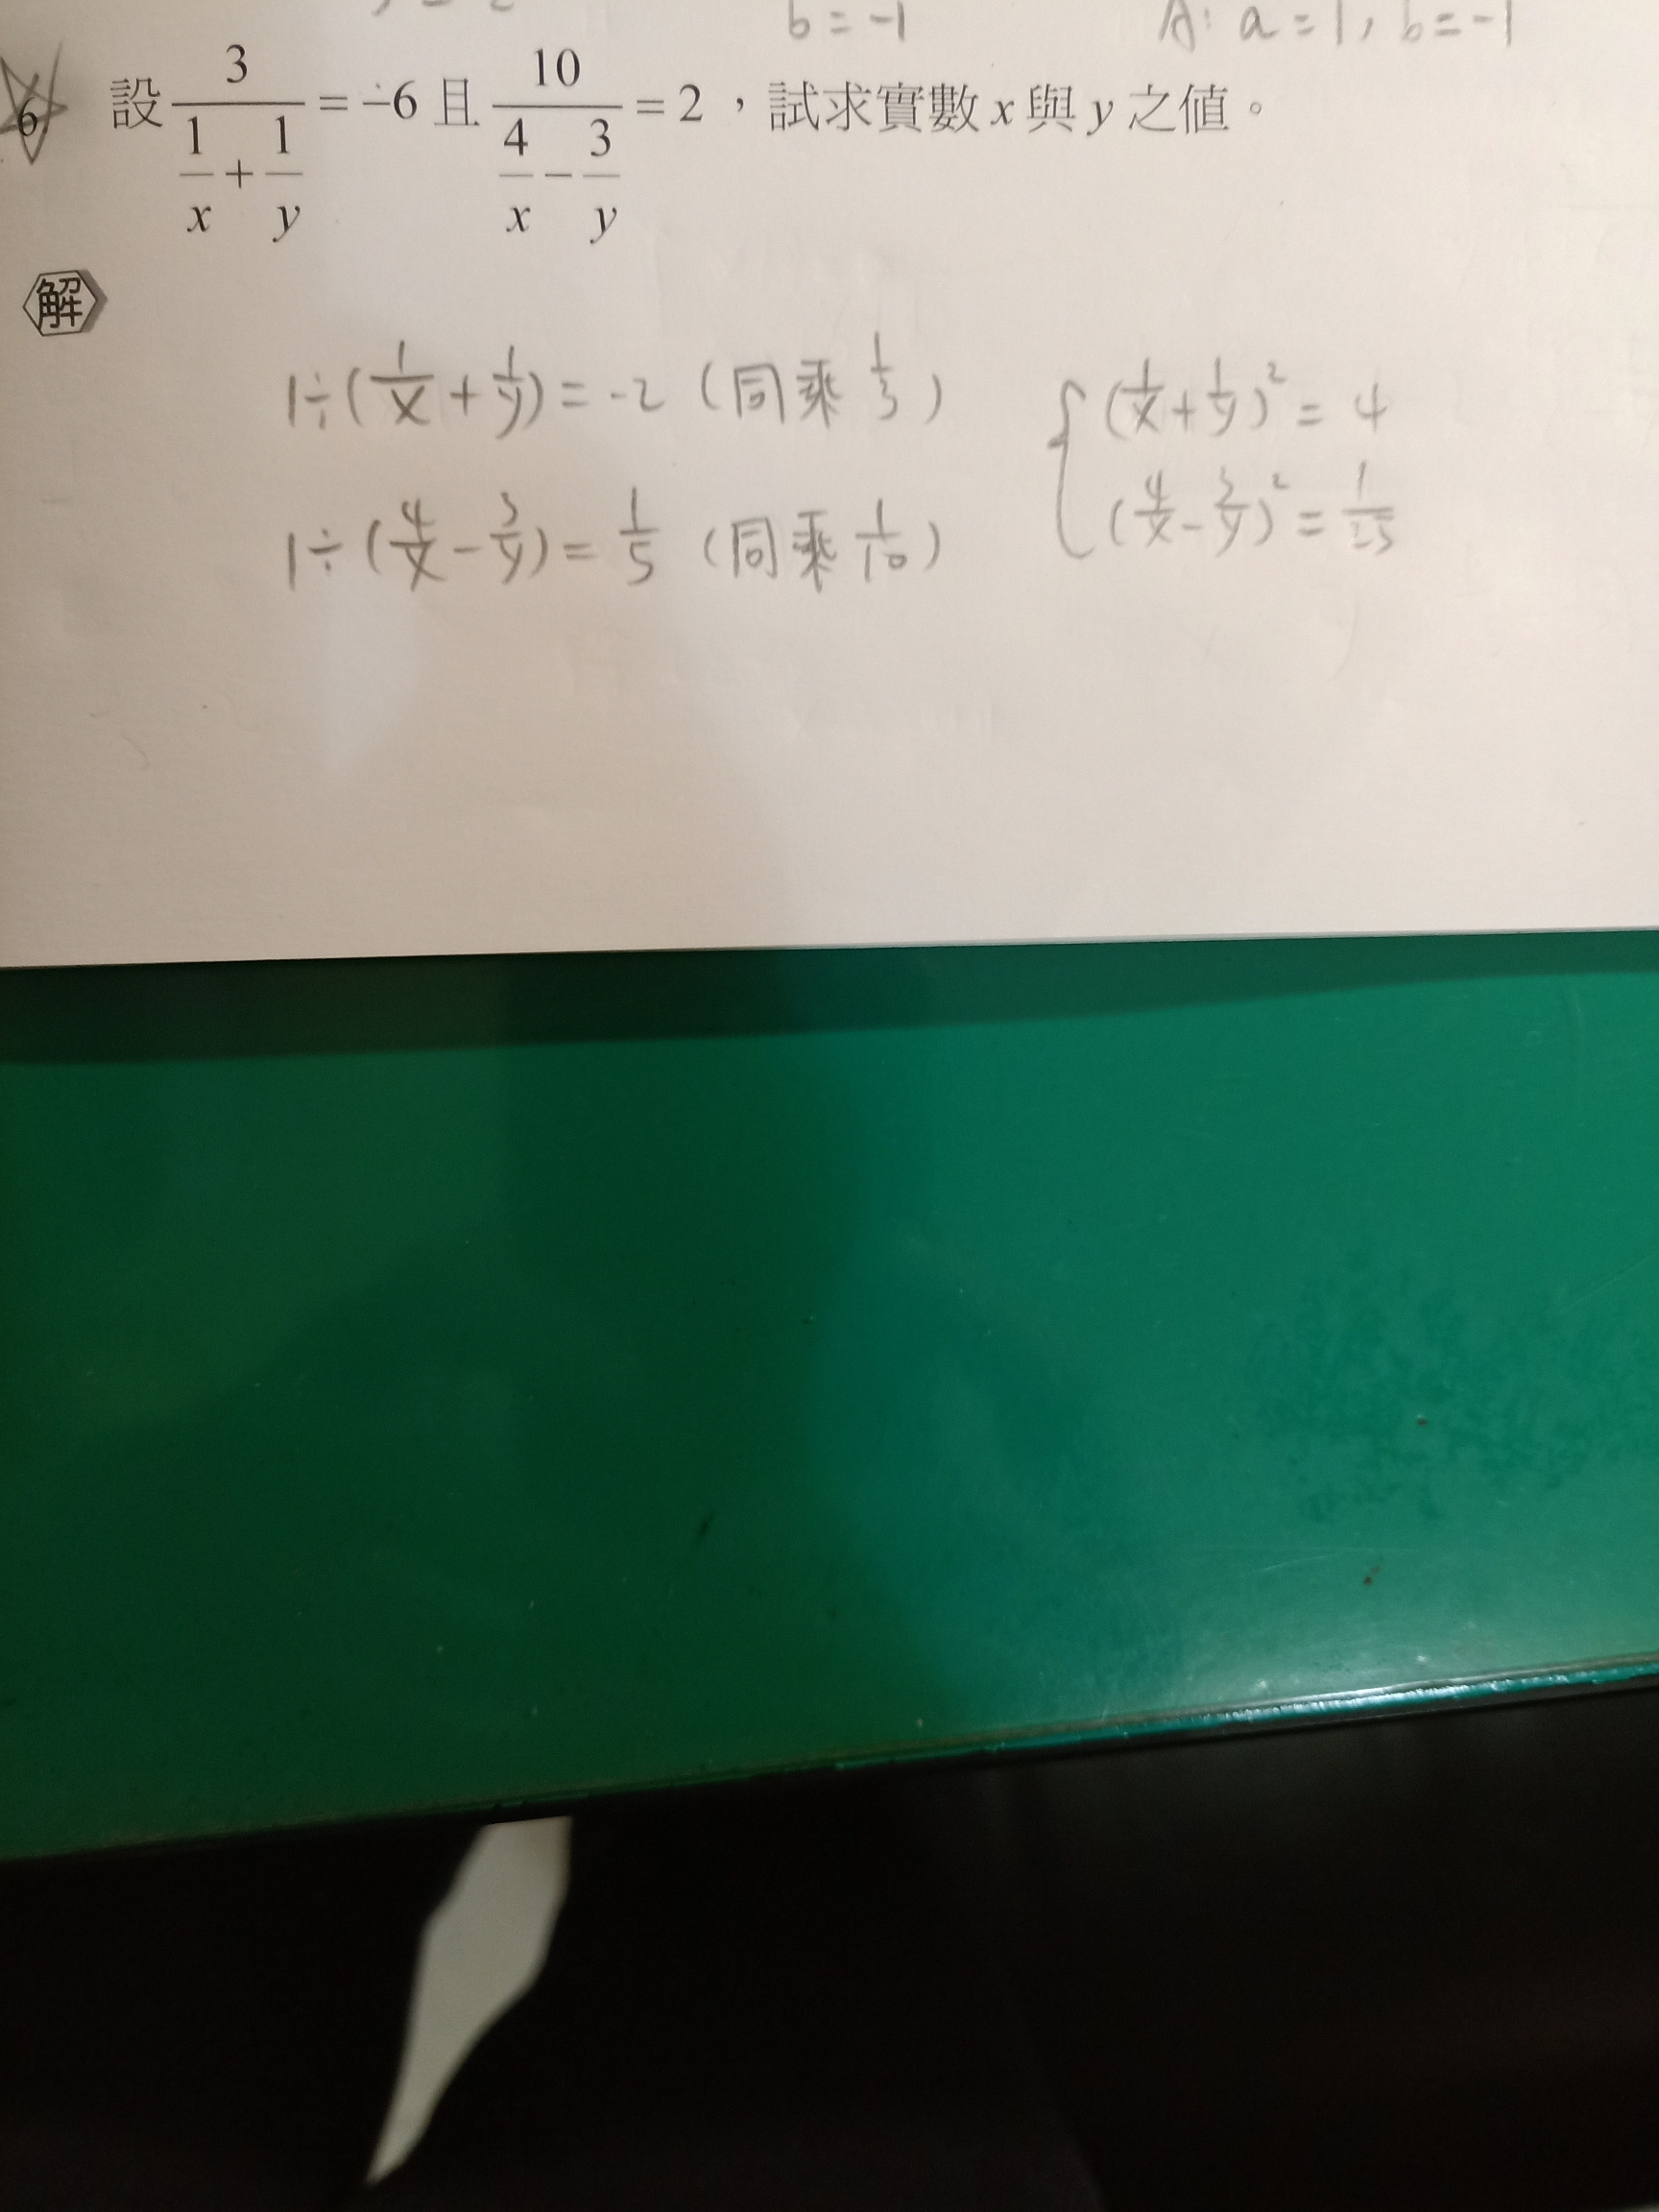 b = -1
A: a = 1, b = -1
6. 設 3/(1/x + 1/y) = -6 且 10/(4/x - 3/y) = 2，試求實數 x 與 y 之值。
解
1÷(1/x + 1/y) = -2 (同乘 1/3)
{ (1/x + 1/y)² = 4
1÷(4/x - 3/y) = 1/5 (同乘 1/10)
(4/x - 3/y)² = 1/25